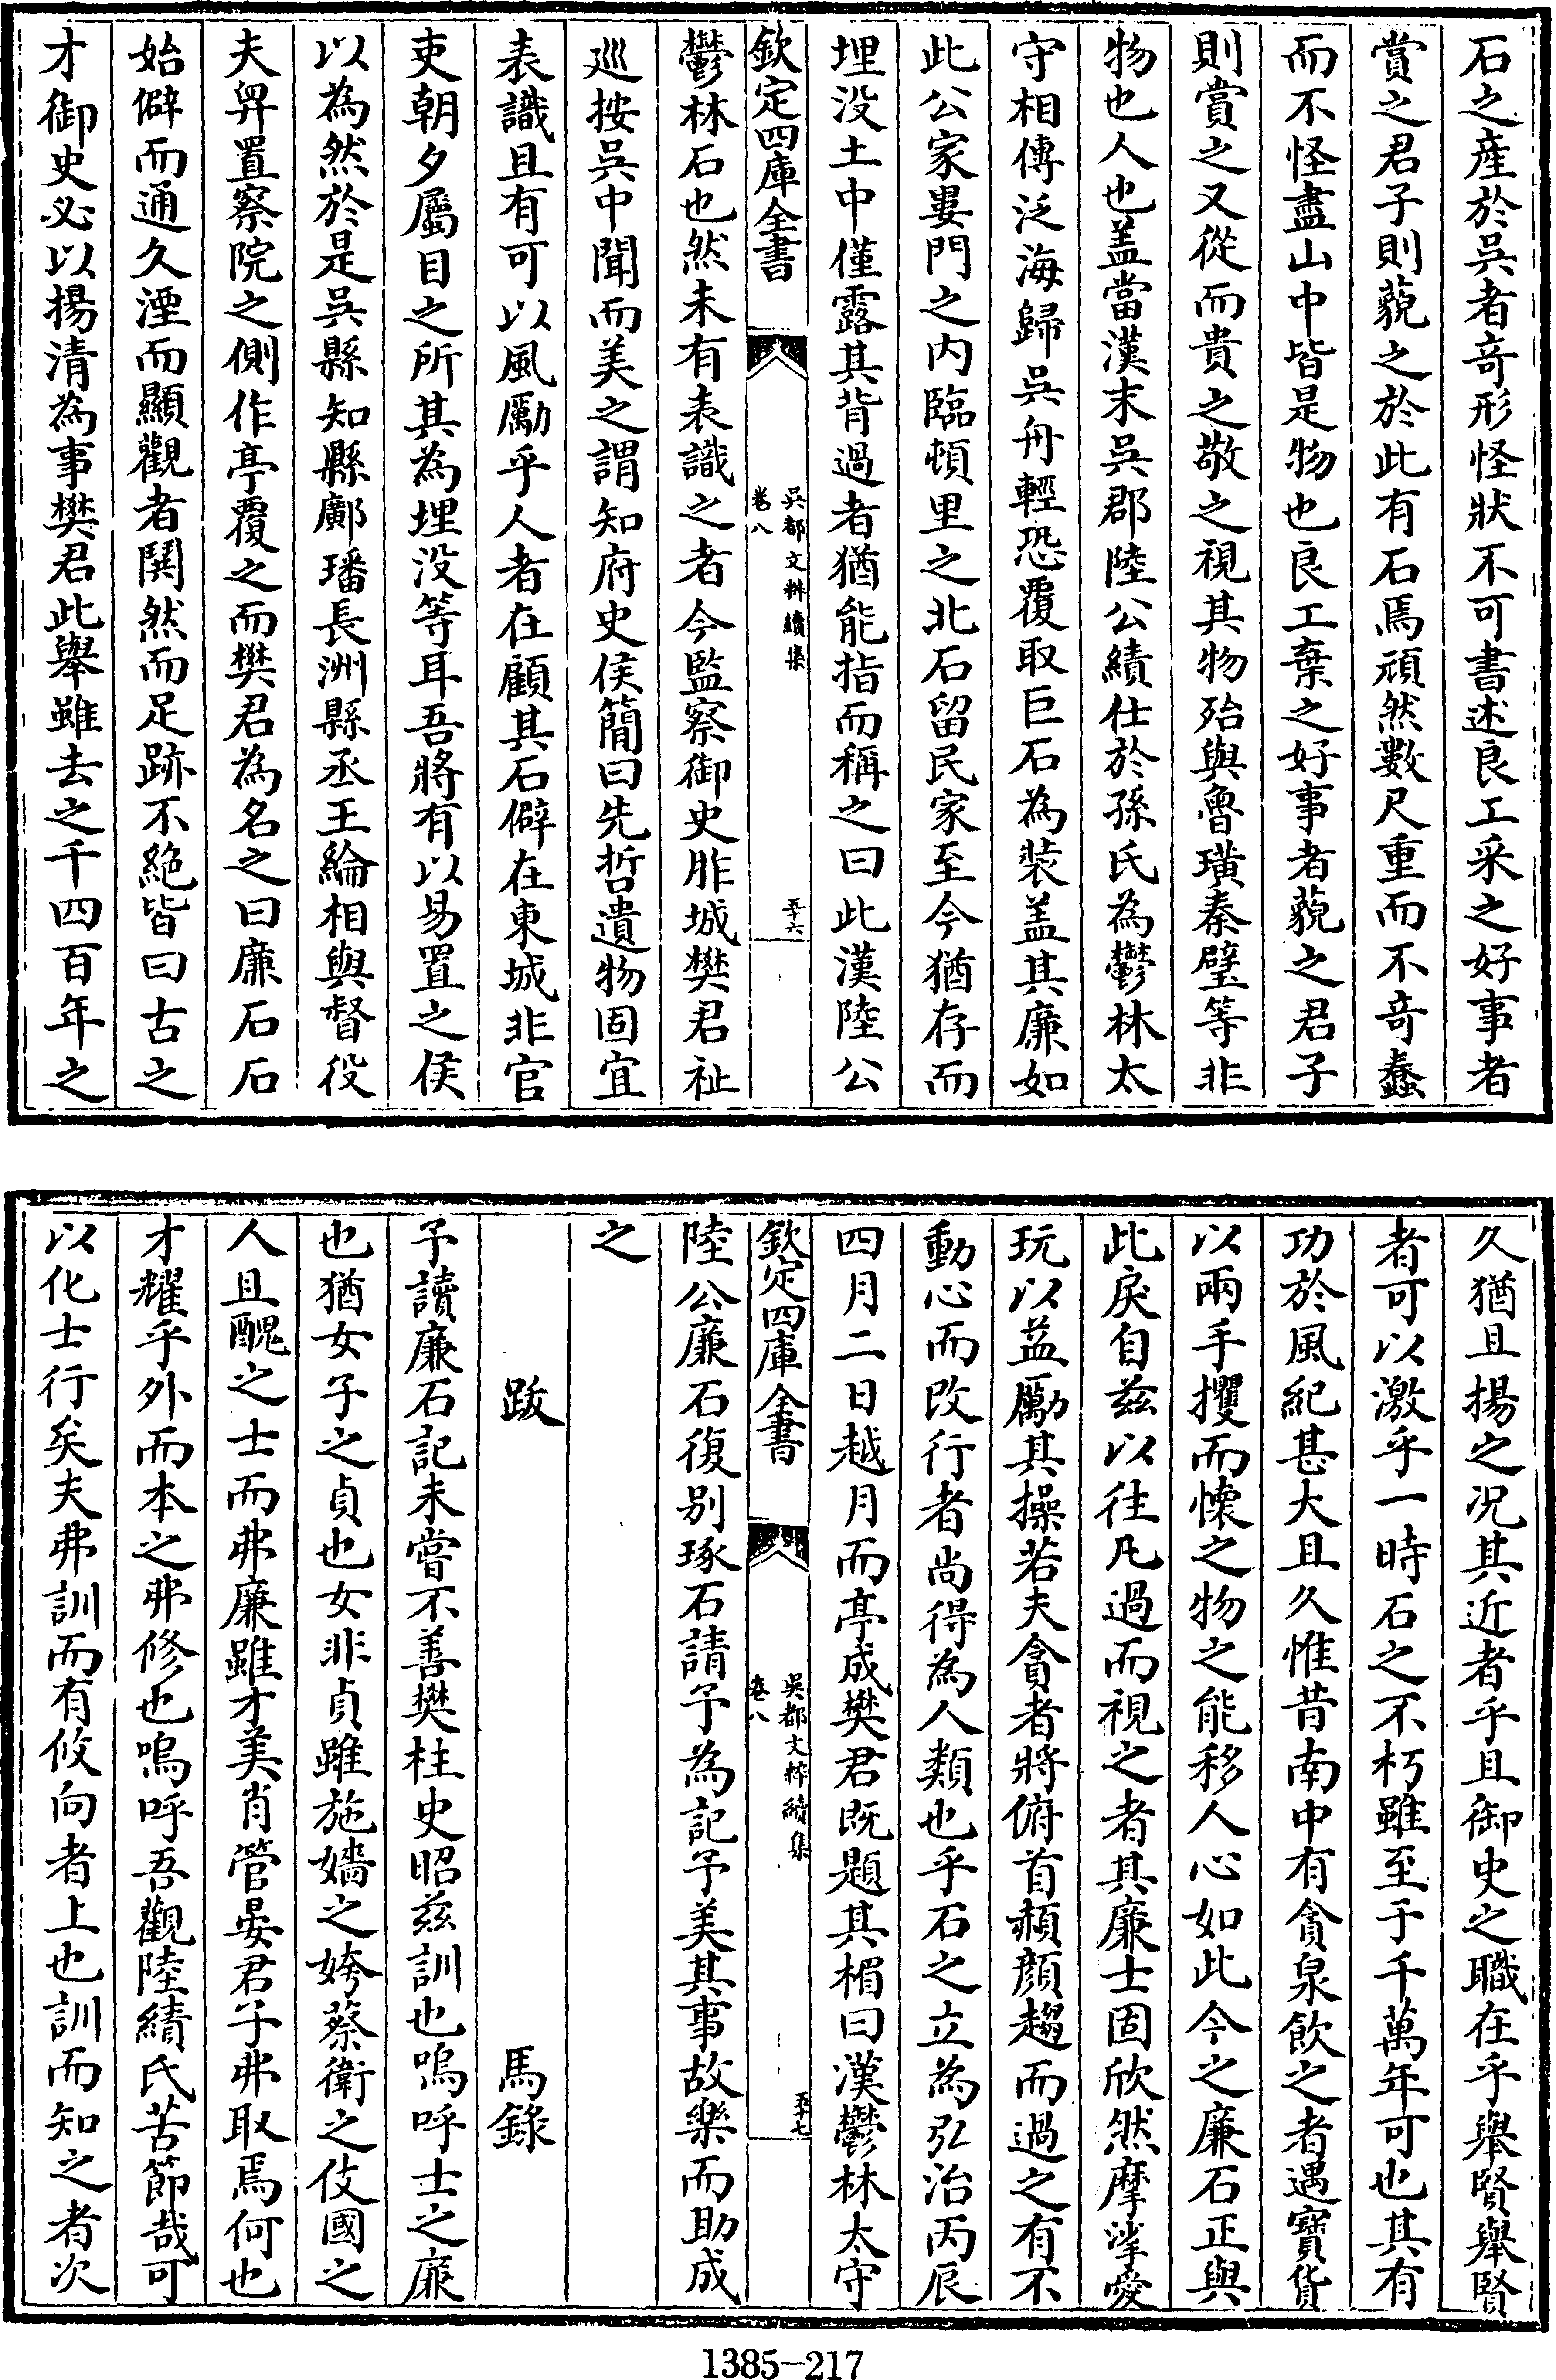 石之産於吳者奇形怪狀不可書述良工采之好事者
賞之君子則藐之於此有石焉頑然數尺重而不奇蠢
而不怪盡山中皆是物也良工棄之好事者藐之君子
則賞之又從而貴之敬之視其物殆與魯璜秦璧等非
物也人也盖當漢末吳郡陸公績仕於孫氏為鬱林太
守相傳泛海歸吳舟輕恐覆取巨石為裝盖其廉如
此公家婁門之内臨頓里之北石留民家至今猶存而
埋没土中僅露其背過者猶能指而稱之曰此漢陸公
欽定四庫全書 吳都文粹續集 卷八 五十六
鬱林石也然未有表識之者今監察御史胙城樊君祉
巡按吳中聞而美之謂知府史侯簡曰先哲遺物固宜
表識且有可以風勵乎人者在顧其石僻在東城非官
吏朝夕屬目之所其為埋没等耳吾將有以易置之侯
以為然於是吳縣知縣鄺璠長洲縣丞王綸相與督役
夫舁置察院之側作亭覆之而樊君為名之曰廉石石
始僻而通久湮而顯觀者鬨然而足跡不絶皆曰古之
才御史必以揚清為事樊君此舉雖去之千四百年之
久猶且揚之况其近者乎且御史之職在乎舉賢舉賢
者可以激乎一時石之不朽雖至于千萬年可也其有
功於風紀甚大且久惟昔南中有貪泉飲之者遇寳貨
以兩手攫而懷之物之能移人心如此今之廉石正與
此戾自兹以往凡過而視之者其廉士固欣然摩挲愛
玩以益勵其操若夫貪者將俯首頳顔趨而過之有不
動心而改行者尚得為人類也乎石之立為弘治丙辰
四月二日越月而亭成樊君既題其楣曰漢鬱林太守
欽定四庫全書 吳都文粹續集 卷八 五十七
陸公廉石復别琢石請予為記予美其事故樂而助成
之
跋 馬錄
予讀廉石記未嘗不善樊柱史昭兹訓也嗚呼士之廉
也猶女子之貞也女非貞雖施嬙之姱蔡衛之伎國之
人且醜之士而弗廉雖才美肖管晏君子弗取焉何也
才耀乎外而本之弗修也嗚呼吾觀陸績氏苦節哉可
以化士行矣夫弗訓而有攸向者上也訓而知之者次
1385-217